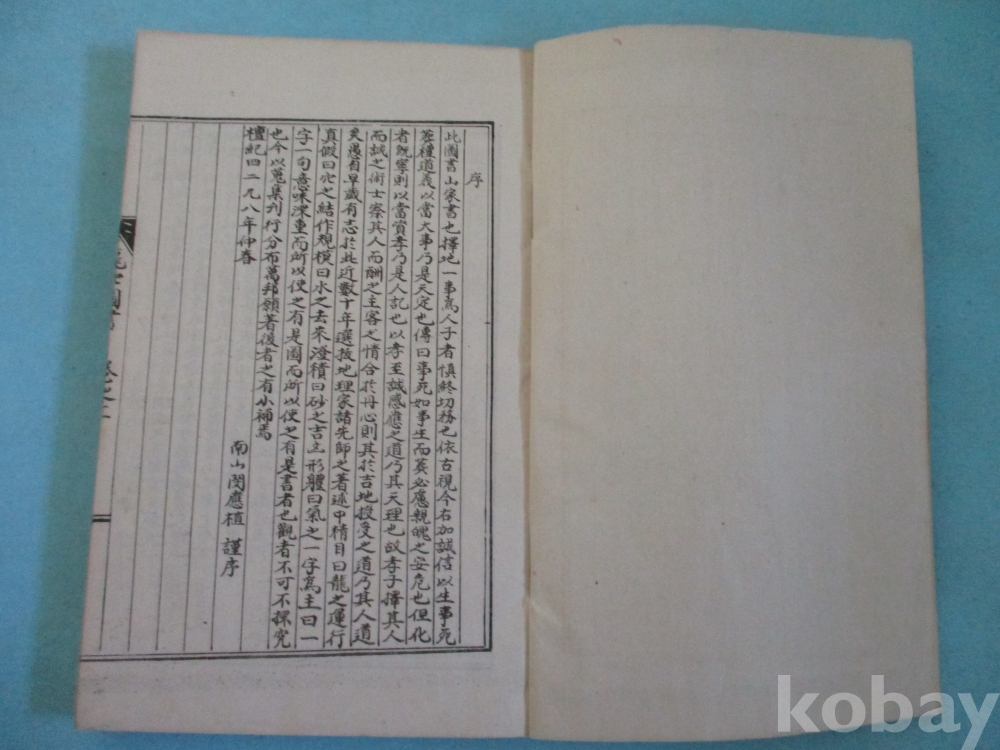 序
此圖書山家書也擇地一事爲人子者慎終切務也依古視今右加誠信以生事死
葬禮道義以當大事乃是天定也傳曰事死如事生而葬必慮親魄之安危也但化
者旣寧則以當賞孝乃是人記也以孝至誠感應之道乃其天理也故孝子擇其人
而誠之術士察其人而酬之主客之情合於丹心則其於吉地授受之道乃其人道
矣愚自早歲有志於此近數十年選拔地理家諸先師之著述中精目曰龍之運行
真假曰穴之結作規模曰水之去來澄積曰砂之吉凶形體曰氣之一字爲主曰一
字一句意味深重而所以使之有是圖而所以使之有是書者也觀者不可不探究
也今以蒐集刊行分布萬邦願著後者之有小補焉
檀紀四二九八年仲春
南山 閔應植 謹序
kobay